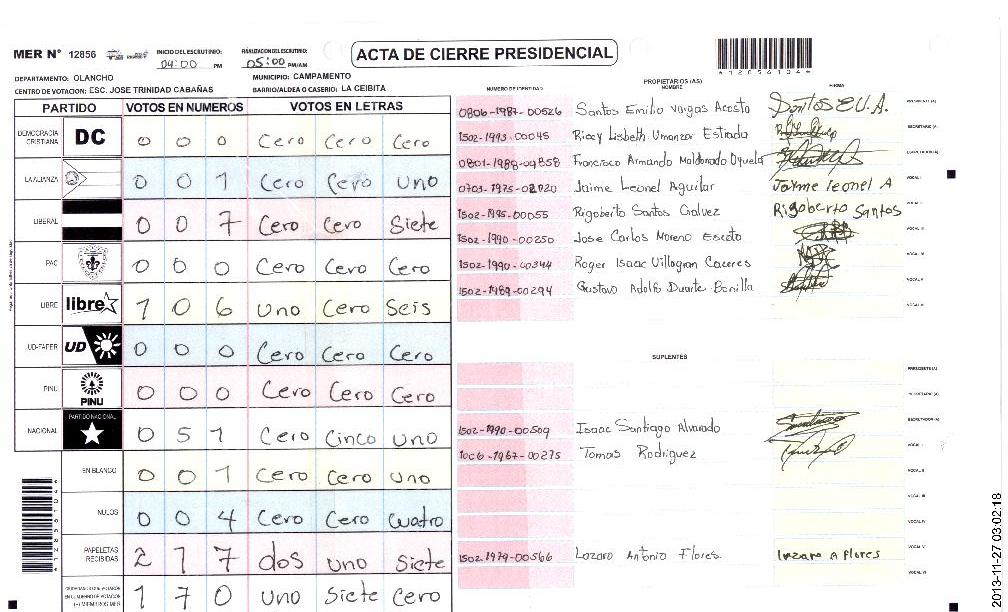 MER N° 12856 INICIO DEL ESCRUTINIO: 04:00 PM FINALIZACION DEL ESCRUTINIO: 05:00 PM/AM ACTA DE CIERRE PRESIDENCIAL
DEPARTAMENTO: OLANCHO MUNICIPIO: CAMPAMENTO
CENTRO DE VOTACION: ESC. JOSE TRINIDAD CABAÑAS BARRIO/ALDEA O CASERIO: LA CEIBITA
PARTIDO VOTOS EN NUMEROS VOTOS EN LETRAS
DEMOCRACIA CRISTIANA DC 0 0 0 Cero Cero Cero
LA ALIANZA 0 0 1 Cero Cero Uno
LIBERAL 0 0 7 Cero Cero Siete
PAC 0 0 0 Cero Cero Cero
LIBRE libre 1 0 6 Uno Cero Seis
UD-FAPER UD 0 0 0 Cero Cero Cero
PINU PINU 0 0 0 Cero Cero Cero
NACIONAL PARTIDO NACIONAL 0 5 1 Cero Cinco Uno
EN BLANCO 0 0 1 Cero Cero Uno
NULOS 0 0 4 Cero Cero Cuatro
PAPELETAS RECIBIDAS 2 1 7 dos uno Siete
CIUDADANOS QUE VOTARON EN CUADERNO DE VOTACION (+) MIEMBROS MER 1 7 0 uno Siete Cero
NUMERO DE IDENTIDAD PROPIETARIOS (AS) NOMBRE FIRMA
0806-1987-00526 Santos Emilio Vargas Acosta Santos E.V.A. PRESIDENTE (A)
1502-1993-00045 Riccy Lisbeth Umanzor Estrada SECRETARIO (A)
0801-1988-09858 Francisco Armando Maldonado Oyuela ESCRUTADOR (A)
0703-1975-02020 Jaime Leonel Aguilar Jaime leonel A VOCAL I
1502-1995-00055 Rigoberto Santos Galvez Rigoberto Santos VOCAL II
1502-1990-00250 Jose Carlos Moreno Escoto VOCAL III
1502-1990-00344 Roger Isaac Villagran Caceres VOCAL IV
1502-1989-00294 Gustavo Adolfo Duarte Bonilla VOCAL V
VOCAL VI
SUPLENTES
PRESIDENTE (A)
SECRETARIO (A)
1502-1990-00509 Isaac Santiago Alvarado ESCRUTADOR (A)
1006-1967-00275 Tomas Rodriguez VOCAL I
VOCAL II
VOCAL III
VOCAL IV
1502-1979-00566 Lazaro Antonio Flores. Lazaro A flores VOCAL V
VOCAL VI
2013-11-27 03:02:18